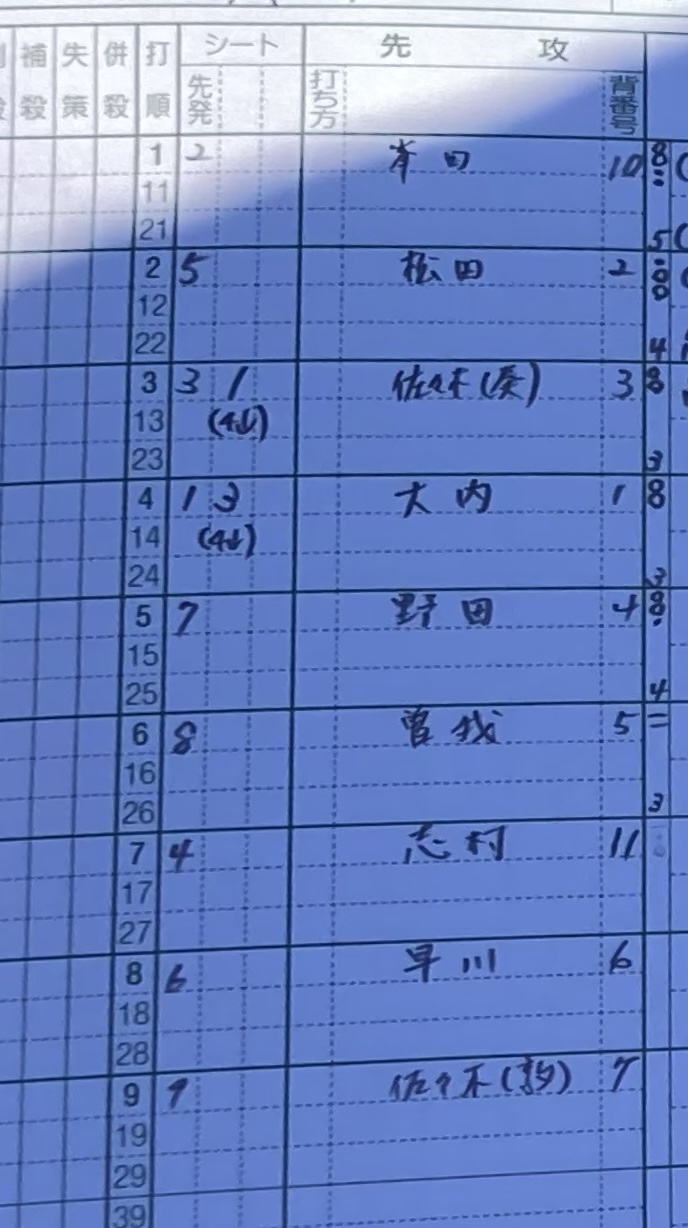 補殺 失策 併殺 打順 シート 先攻
先発 打ち方 背番号
1 2 10 8
11
21 5
2 5 松田 2
12
22 4
3 3 1 佐々木(奏) 3 8
13 (4↓)
23 3
4 1 3 大内 1 8
14 (4↓)
24 3
5 7 野田 4 8
15
25 4
6 8 曽我 5
16
26 3
7 4 志村 11
17
27
8 6 早川 6
18
28
9 9 佐々木 7
19
29
39